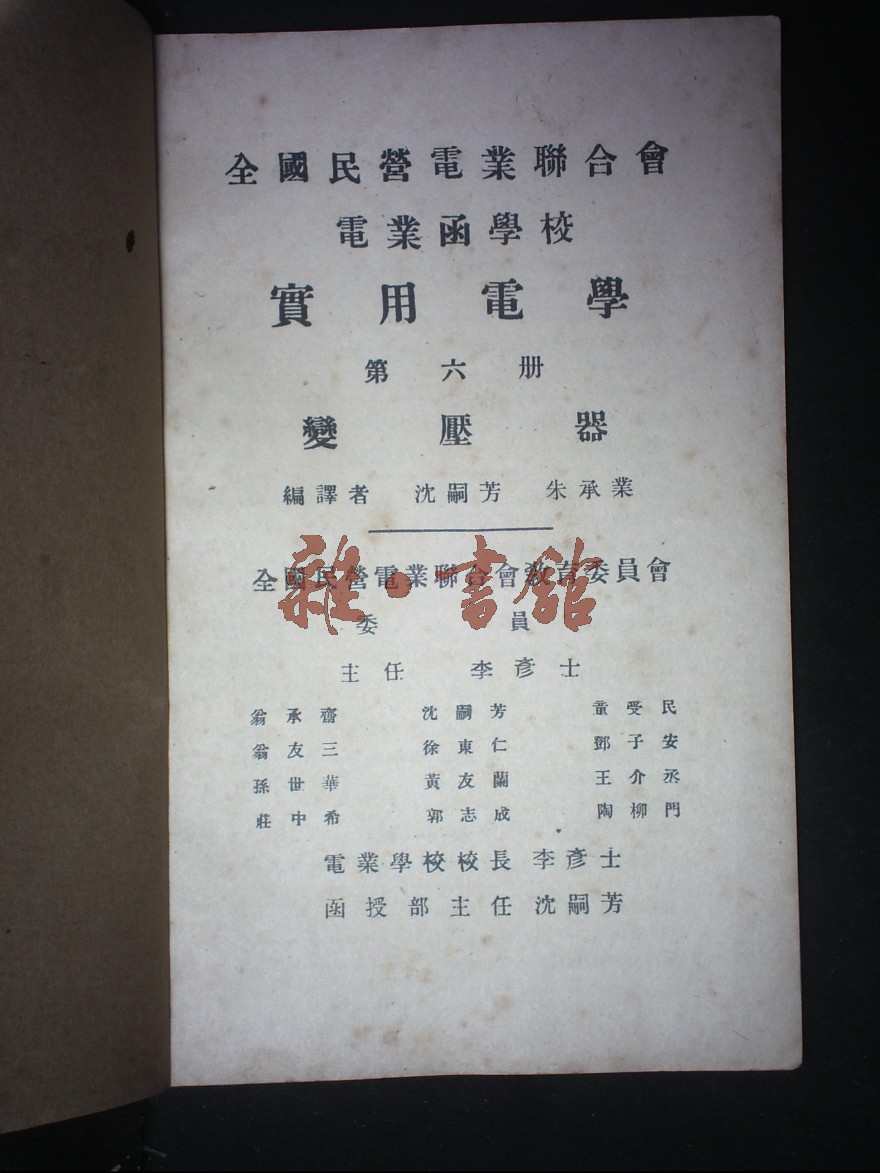 全國民營電業聯合會
電業函學校
實用電學
第六册
變壓器
編譯者 沈嗣芳 朱承業
全國民營電業聯合會教育委員會
雜·書館
委員
主任 李彥士
翁承齋 沈嗣芳 董受民
翁友三 徐東仁 鄧子安
孫世華 黃友蘭 王介丞
莊中希 郭志成 陶柳門
電業學校校長 李彥士
函授部主任 沈嗣芳